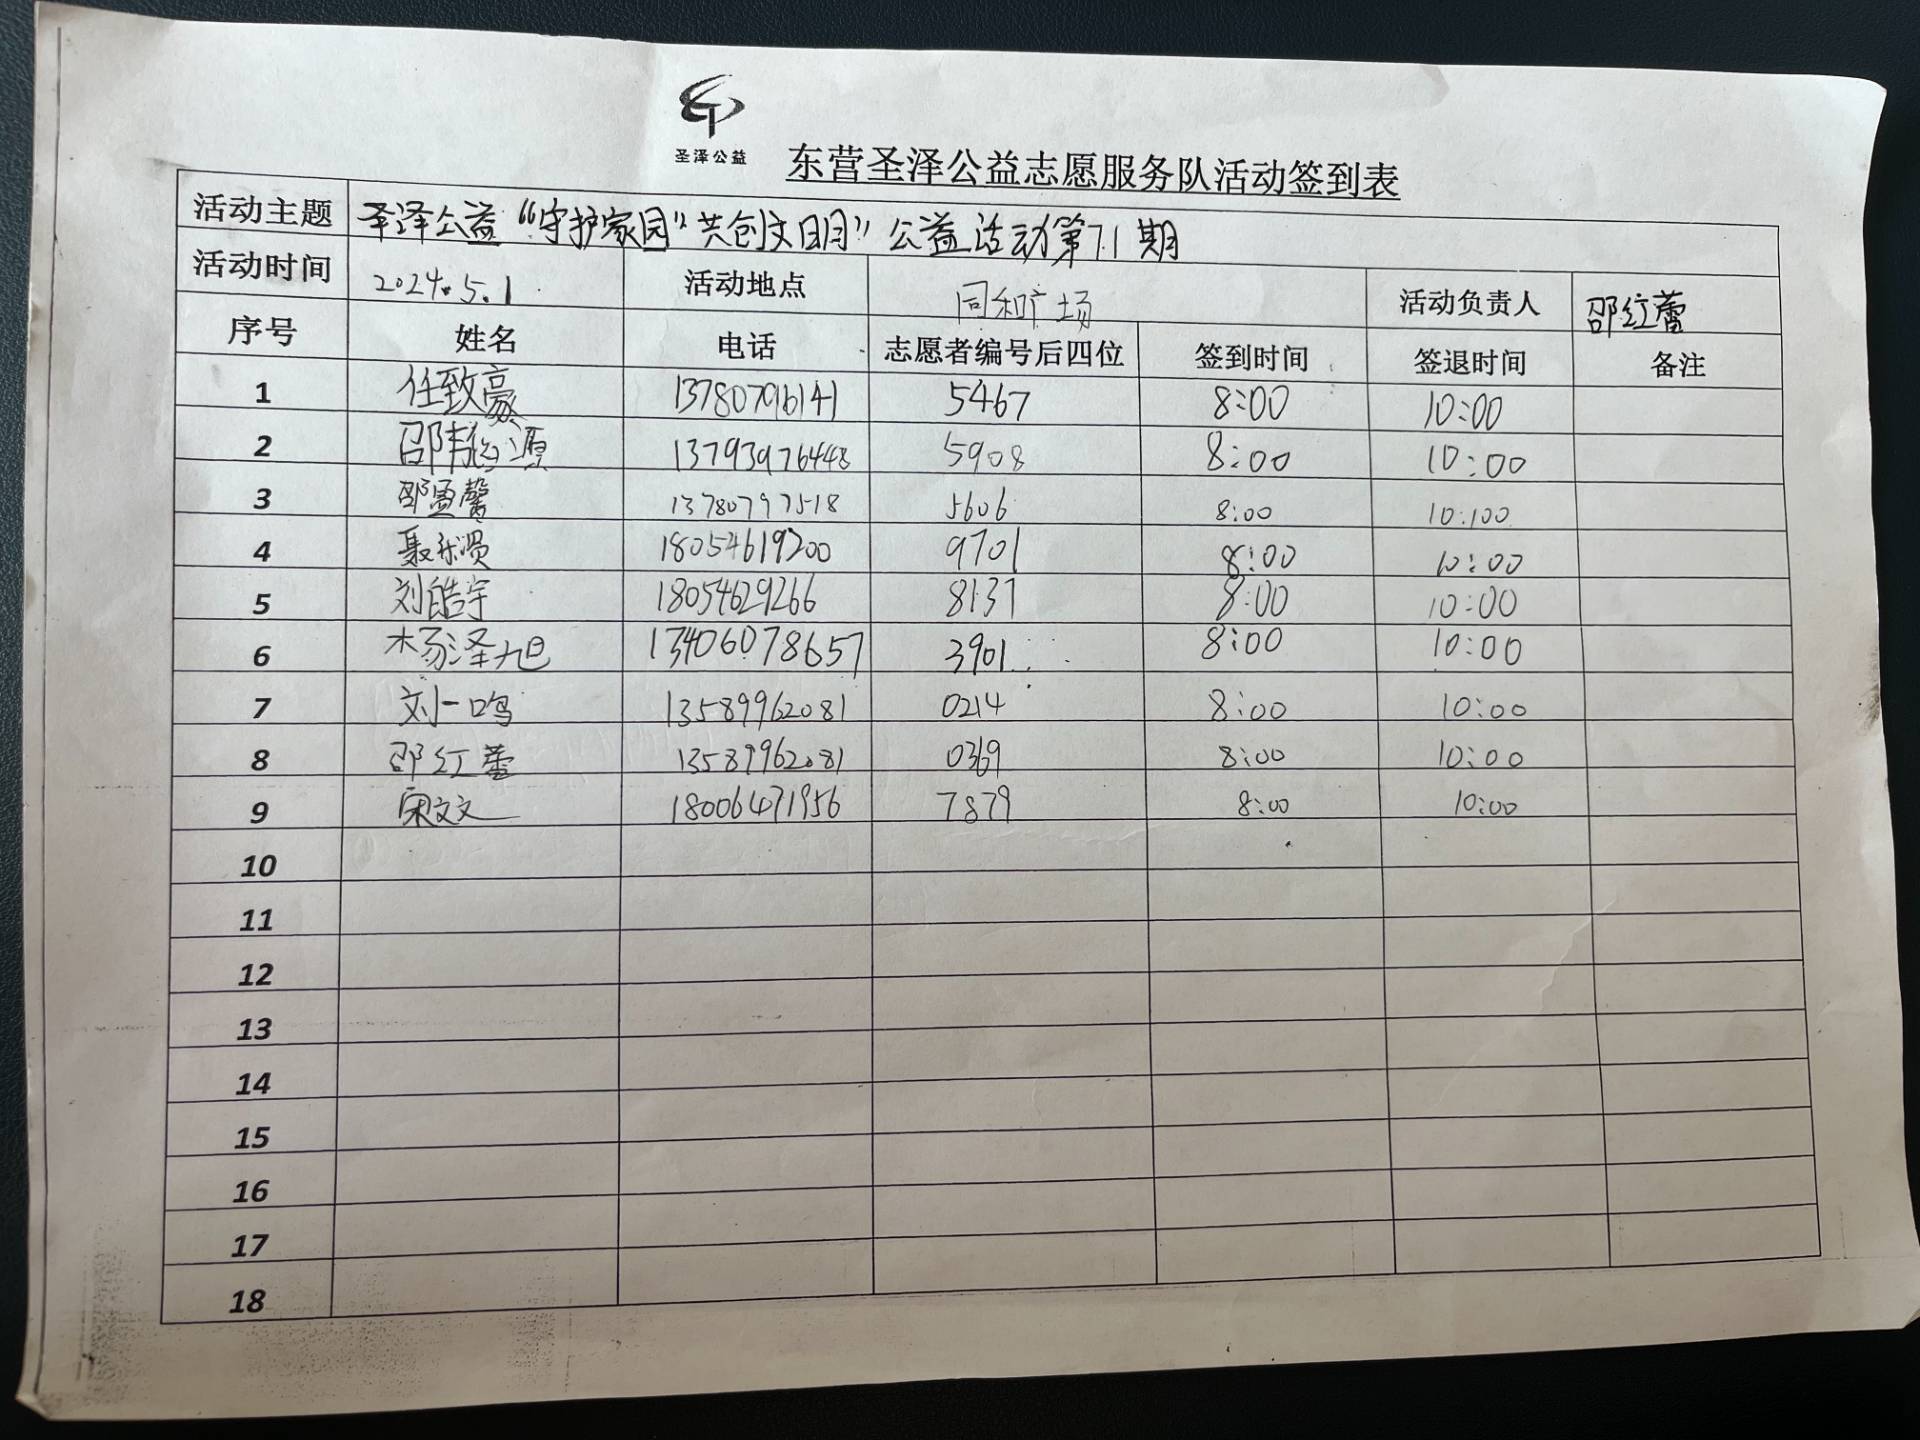 圣泽公益
东营圣泽公益志愿服务队活动签到表
活动主题 圣泽公益“守护家园”共创文明”公益活动第71期
活动时间 2024.5.1 活动地点 同和广场 活动负责人 邵红蕾
序号 姓名 电话 志愿者编号后四位 签到时间 签退时间 备注
1 任致豪 13780796141 5467 8:00 10:00
2 13793976448 5908 8:00 10:00
3 邵孟馨 13780797518 5606 8:00 10:100
4 18054619200 9701 8:00 10:00
5 刘皓宇 18054629266 8137 8:00 10:00
6 杨泽旭 13406078657 3901 8:00 10:00
7 刘一鸣 13589962081 0214 8:00 10:00
8 邵红蕾 13589962081 0369 8:00 10:00
9 宋文文 18006471956 7879 8:00 10:00
10
11
12
13
14
15
16
17
18